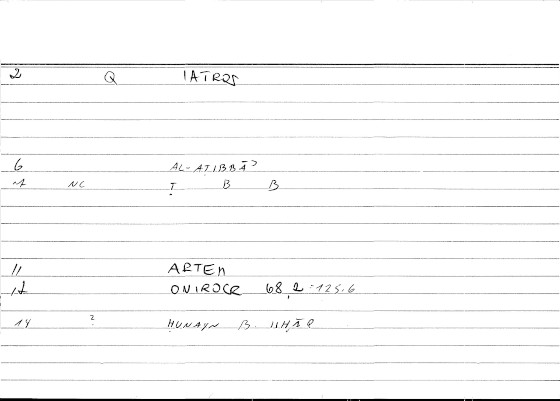 2 Q IATROS
6 AL-AṬIBBĀʾ
7 NC Ṭ B B
11 ARTEM
12 ONIROCR 68,2 = 125.6
14 ? ḤUNAYN B. IṢḤĀQ